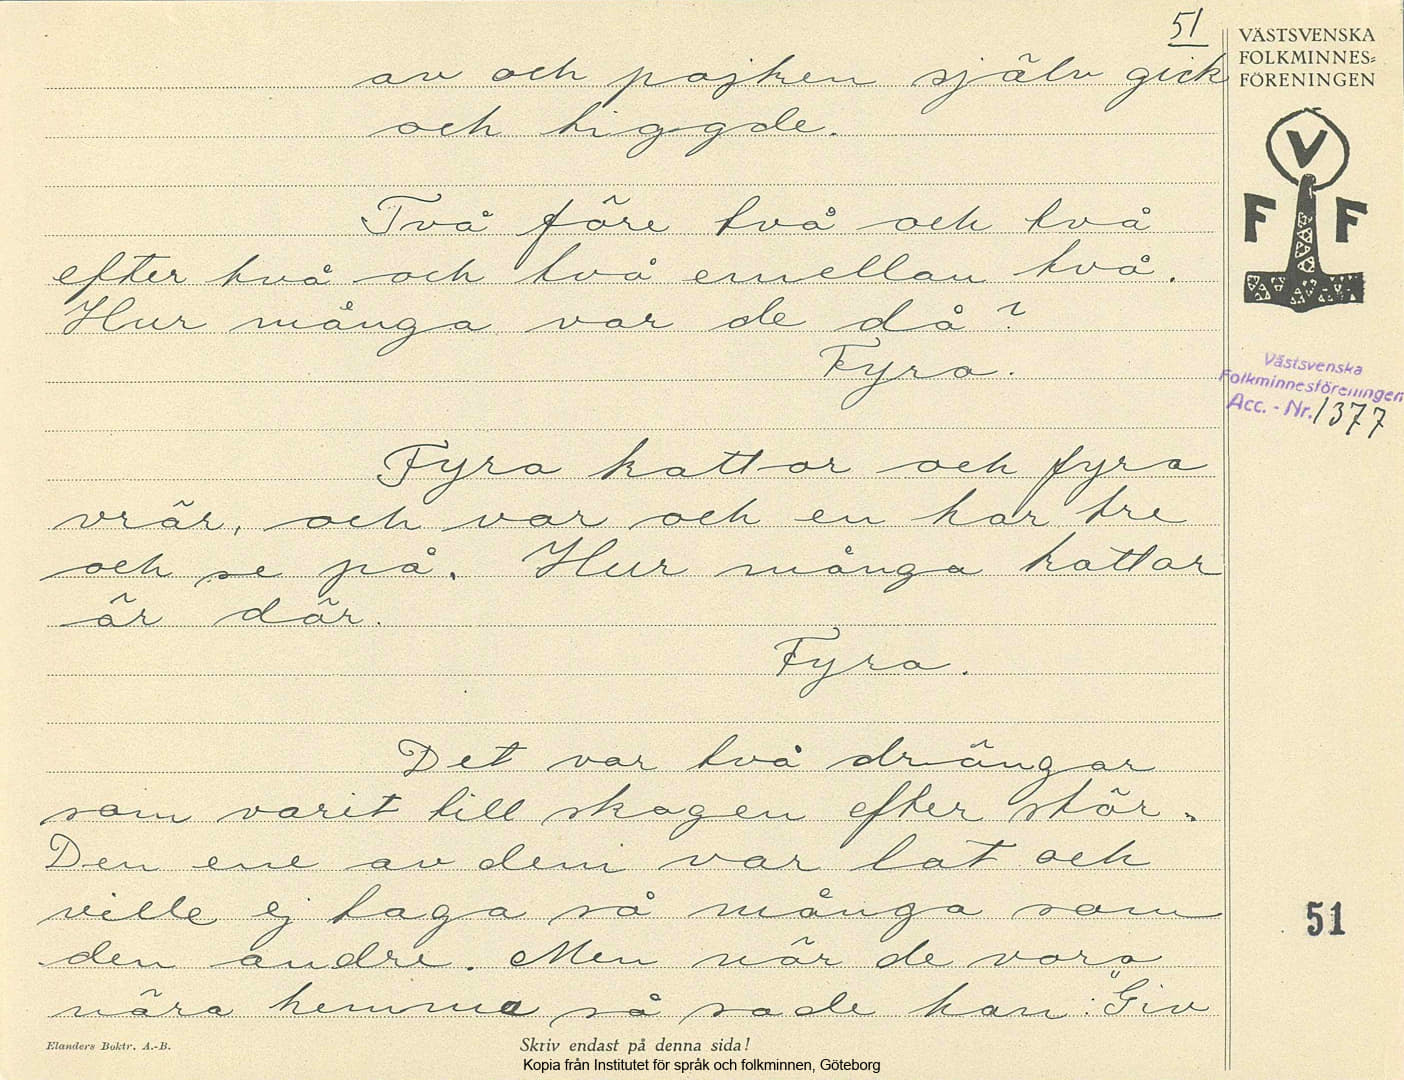 51
av och pojken själv gick
och tiggde.
Två före två och två
efter två och två emellan två.
Hur många var de då?
Fyra.
Fyra kattor och fyra
vrår, och var och en har tre
och se på. Hur många kattor
är där.
Fyra.
Det var två drängar
som varit till skogen efter stör.
Den ene av dem var lat och
ville ej taga så många som
den andre. Men när de voro
nära hemma så sade han: "Giv
VÄSTSVENSKA
FOLKMINNES=
FÖRENINGEN
V
F F
Västsvenska
Folkminnesföreningen
Acc. - Nr. 1377
51
Elanders Boktr. A.-B.
Skriv endast på denna sida!
Kopia från Institutet för språk och folkminnen, Göteborg